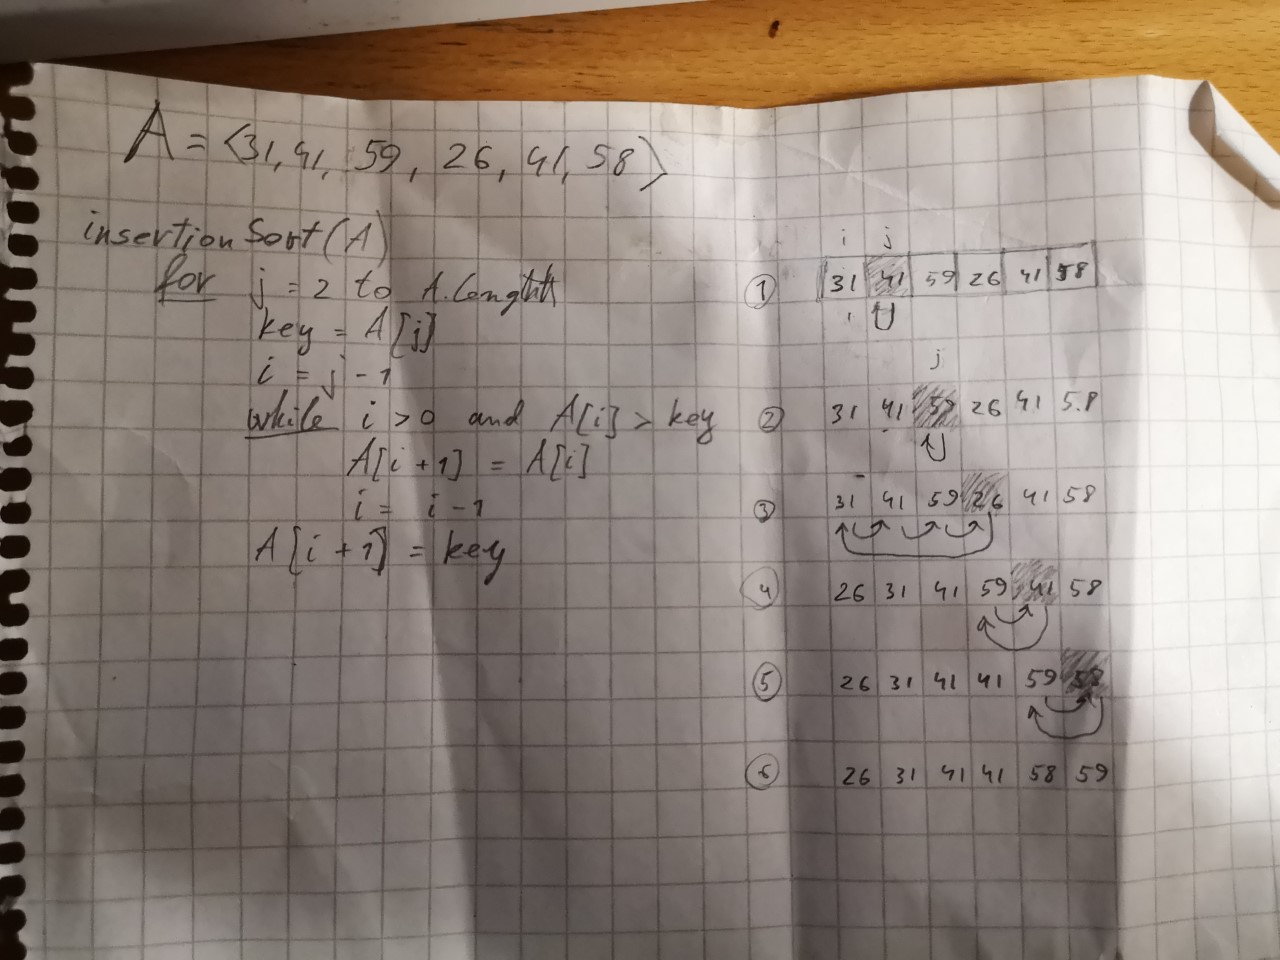 A = <31, 41, 59, 26, 41, 58>
insertion Sort (A)
for j = 2 to A.lenght
key = A[j]
i = j - 1
while i > 0 and A[i] > key
A[i + 1] = A[i]
i = i - 1
A[i + 1] = key
i j
1 31 41 59 26 41 58
j
2 31 41 59 26 41 58
3 31 41 59 26 41 58
4 26 31 41 59 41 58
5 26 31 41 41 59 58
6 26 31 41 41 58 59